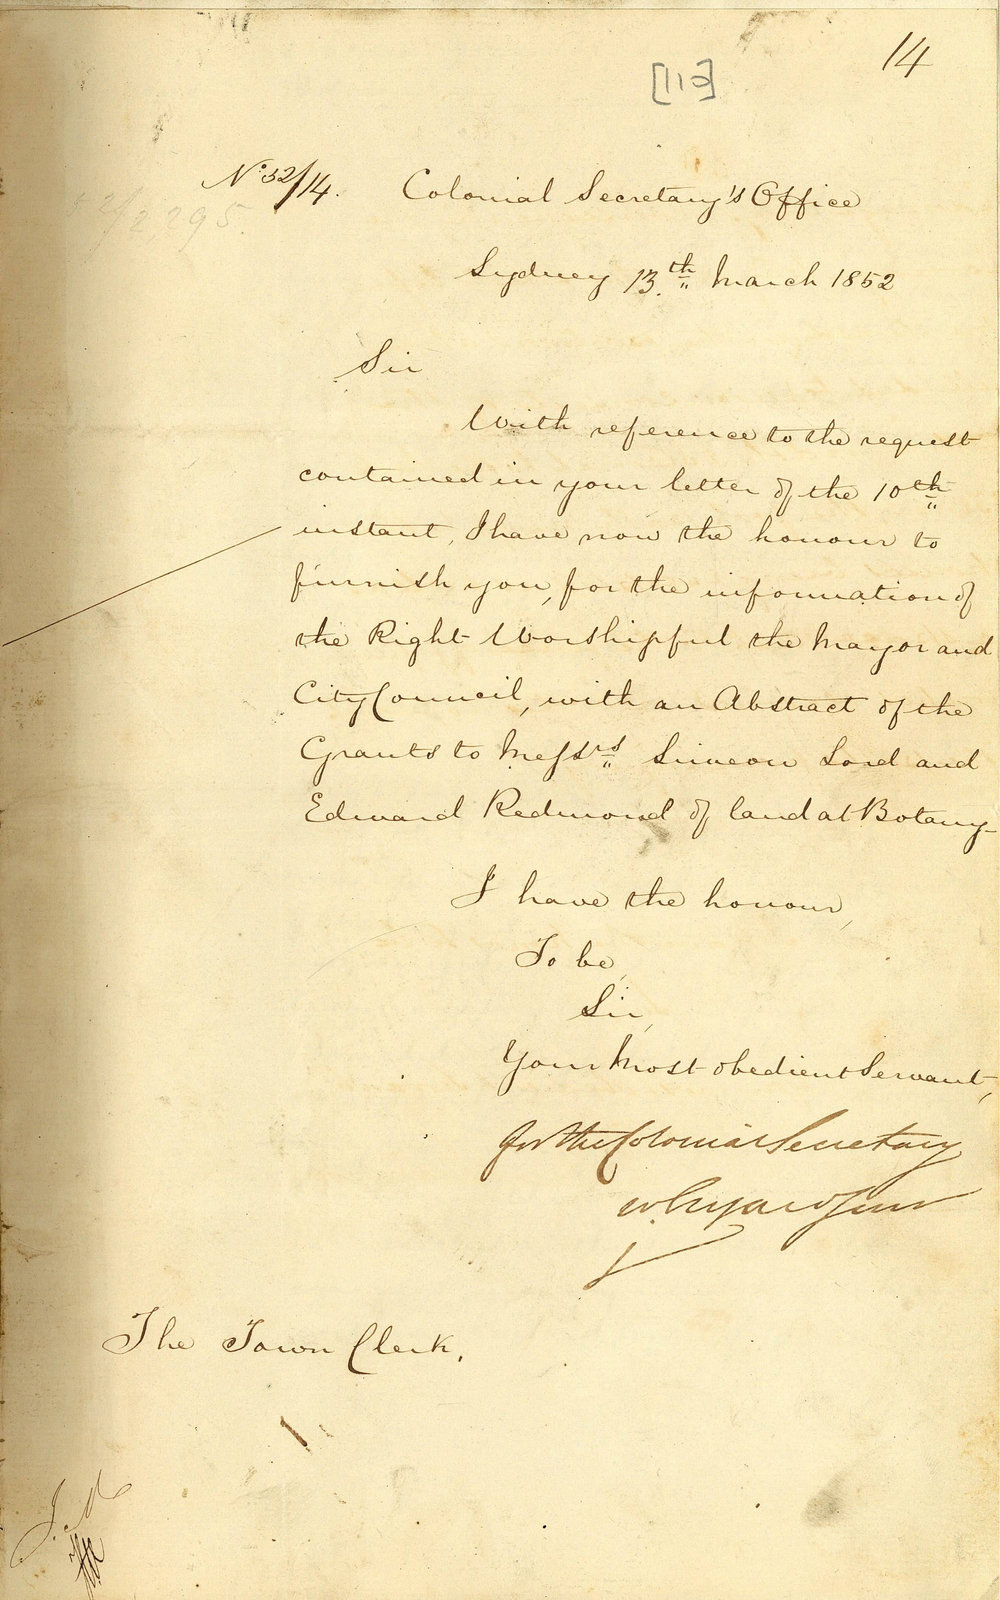 14
[113]
No. 52/14. Colonial Secretary's Office
Sydney 13th March 1852
Sir
With reference to the request
contained in your letter of the 10th
instant, I have now the honour to
furnish you, for the information of
the Right Worshipful the Mayor and
City Council, with an Abstract of the
Grants to Messrs Simeon Lord and
Edward Redmond of land at Botany
I have the honour,
To be,
Sir,
Your Most obedient Servant,
for the Colonial Secretary
W. Elyard Junr
The Town Clerk.